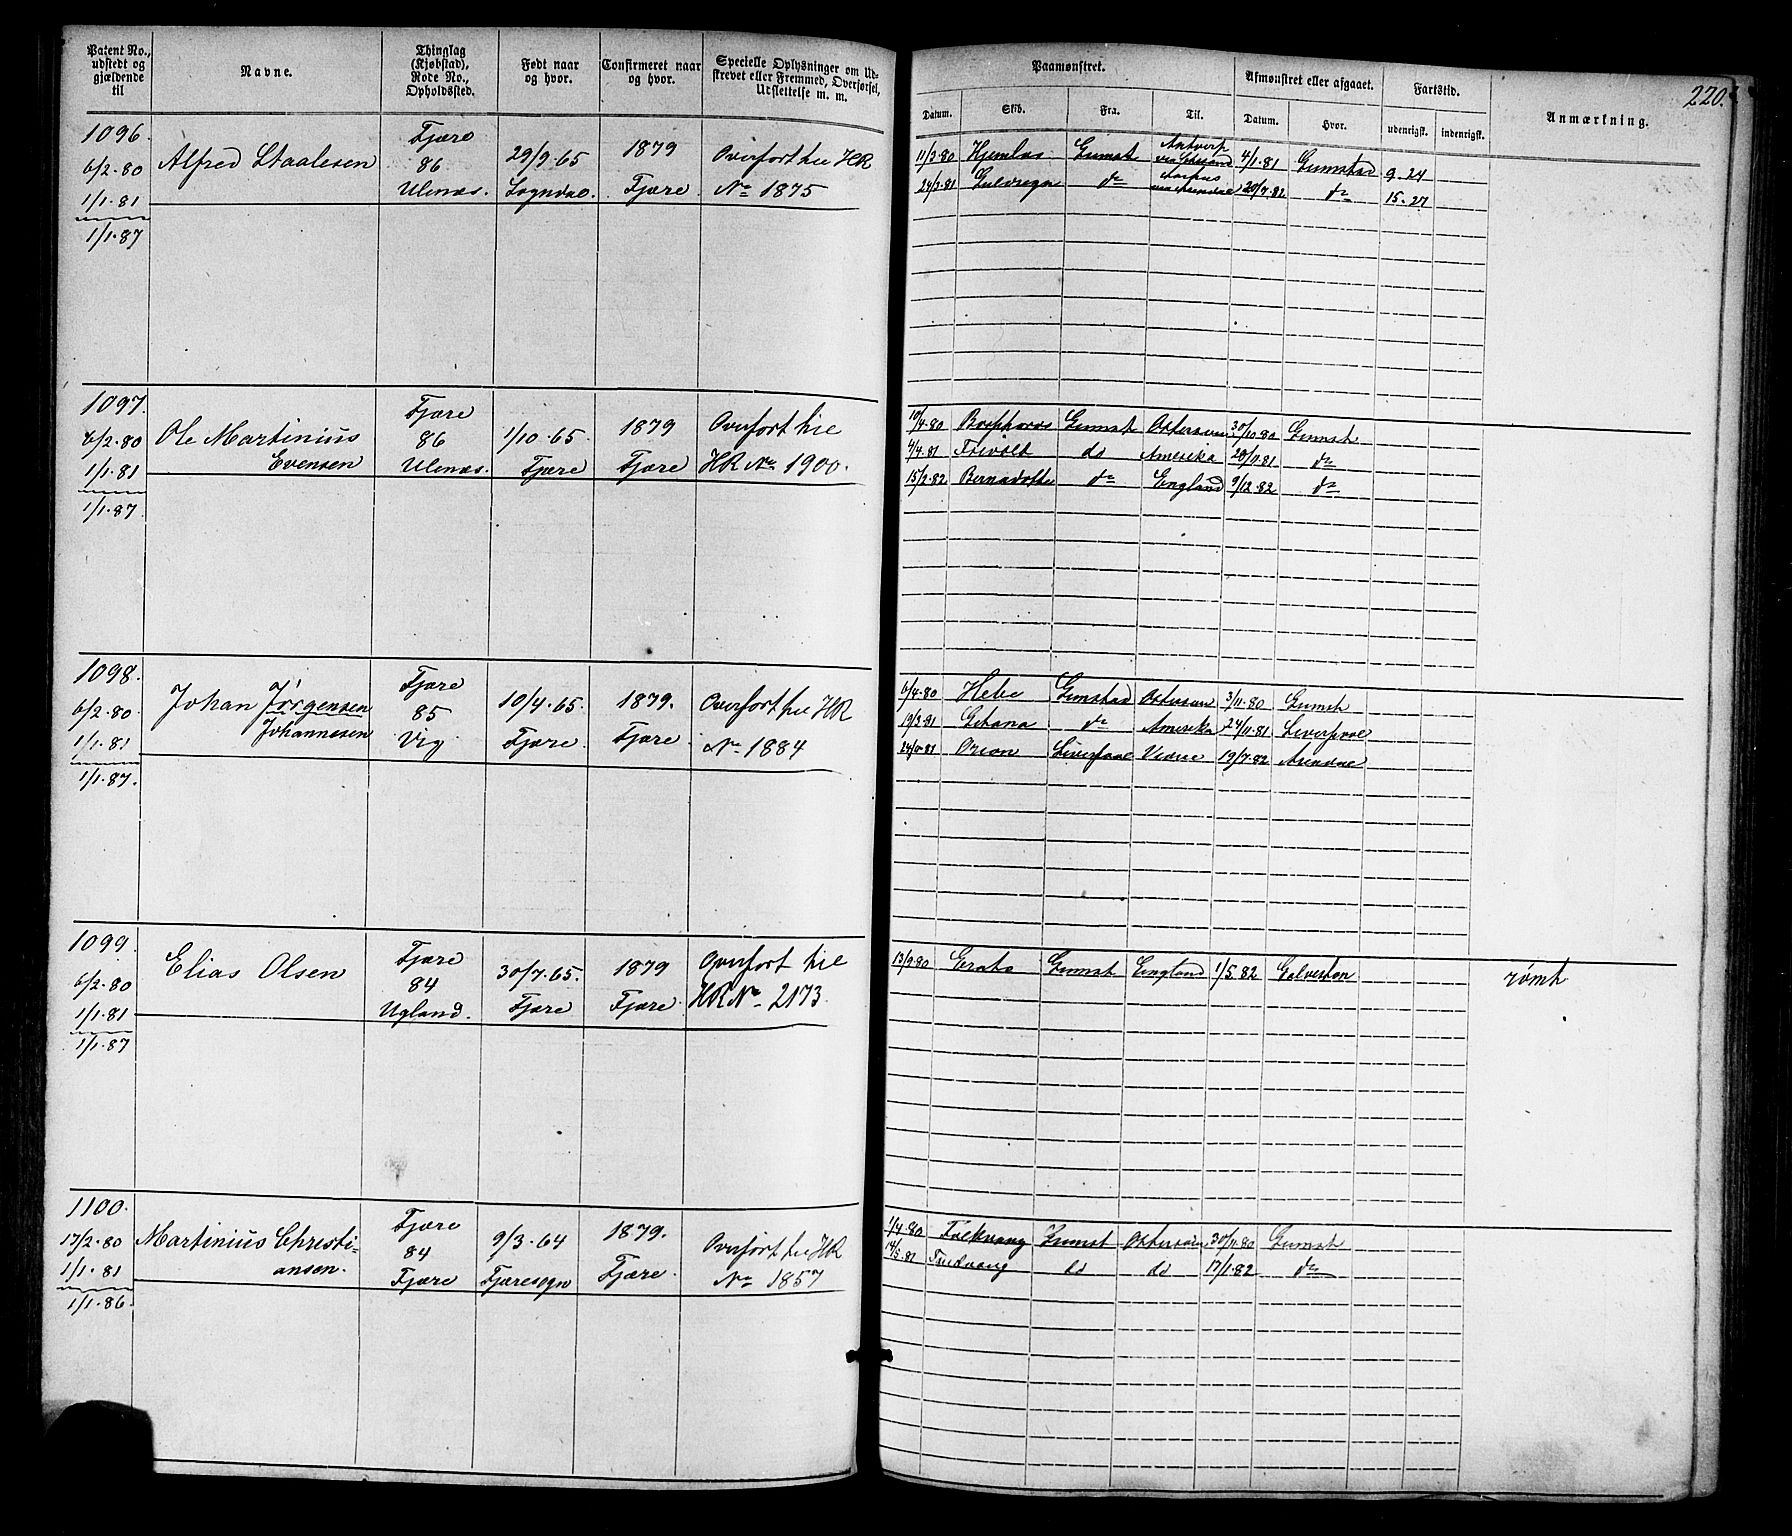 220.
Patent No., udstedt og gjældende til
Navne.
Thinglag (Kjøbstad), Rode No., Opholdssted.
Født naar og hvor.
Confirmeret naar og hvor.
Specielle Oplysninger om Udskrevet eller Fremmed, Overførsel, Udslettelse m. m.
Paamønstret.
Datum.
Skib.
Fra.
Til.
Afmønstret eller afgaaet.
Datum.
Hvor.
Fartstid.
udenrigsk.
indenrigsk.
Anmærkning.
1096.
6/2.80
1/1.81
1/1.87
Alfred Staalesen
Fjære
86
Ulenæs.
29/9.65
Sogndal.
1879
Fjære
Overført til HR
No 1875
11/3.80 Grimst 4/1.81 Grimstad 9.24
24/3.81 do 20/7.82 do 15.27
1097.
6/2.80
1/1.81
1/1.87
Ole Martinius
Evensen
Fjære
86
Ulenæs.
1/10.65.
Fjære
1879
Fjære
Overført til
HR No 1900.
10/4.80 Grimst Østersøen 30/10.80 Grimst
4/4.81 Frivold do Amerika 20/11.81 do
15/2.82 Bernadotte do England 9/12.82 do
1098.
6/2.80.
1/1.81
1/1.87.
Johan Jørgensen
Johannesen
Fjære
85
Vig.
10/4.65.
Fjære.
1879.
Fjære
Overført til HR
No 1884
6/4.80 Hebe Grimstad Østersøen 3/11.80 Grimst
19/3.81 Getana do Amerika 24/11.81 Liverpool
Orion Liverpool 19/7.82 Arendal
1099.
6/2.80
1/1.81
1/1.87
Elias Olsen
Fjære
84
Ugland.
30/7.65.
Fjære
1879
Fjære.
Overført til
HR No. 2173.
13/9.80 Erato Grimst England 1/5.82 Galveston rømt
1100.
17/2.80
1/1.81
1/1.86.
Martinius Christi-
ansen.
Fjære
84
Fjære
9/3.64
Fjæresogn
1879.
Fjære.
Overført til HR
No 1857
1/4.80 Folkvang Grimst Østersøen 30/11.80 Grimst
14/5.81 do do 17/1.82 do